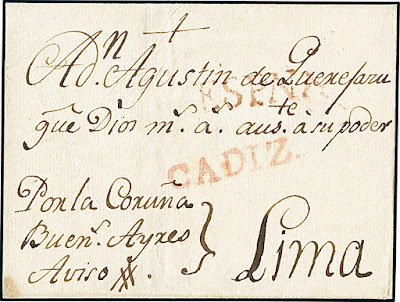 A Dn. Agustin de Querejazu
ESPAÑA
que Dios ms. as. auste. à su poder
CADIZ.
Por la Coruña
Buens. Ayres
Aviso
Lima